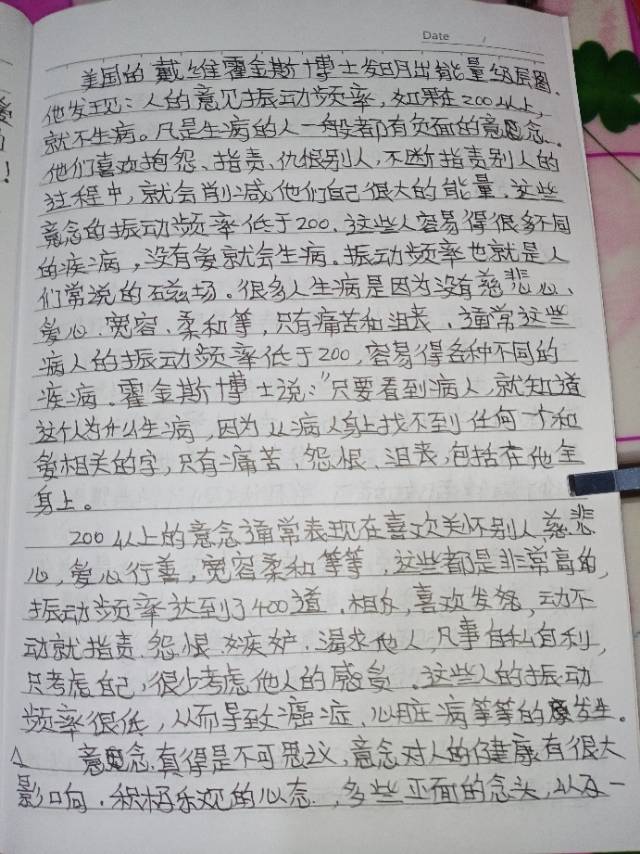 Date /
美国的戴维霍金斯博士发明出能量级层图.
他发现：人的意见振动频率，如果在200以上，
就不生病。凡是生病的人一般都有负面的意念.
他们喜欢抱怨、指责、仇恨别人，不断指责别人的
过程中，就会削减他们自己很大的能量，这些
意念的振动频率低于200．这些人容易得很多不同
的疾病，没有爱就会生病．振动频率也就是人
们常说的磁场。很多人生病是因为没有慈悲心、
爱心、宽容、柔和等，只有痛苦和沮丧．通常这些
病人的振动频率低于200，容易得各种不同的
疾病．霍金斯博士说："只要看到病人，就知道
这个人为什么生病，因为从病人身上找不到任何一个和
爱相关的字，只有痛苦、怨恨、沮丧，包括在他全
身上。
200以上的意念通常表现在喜欢关怀别人，慈悲
心，爱心行善，宽容柔和等等，这些都是非常高的，
振动频率达到了400道．相反，喜欢发怒，动不
动就指责．怨恨．嫉妒．渴求他人，凡事自私自利，
只考虑自己，很少考虑他人的感受．这些人的振动
频率很低，从而导致癌症、心脏病等等的发生。
意念．真得是不可思议，意念对人的健康有很大
影响．积极乐观的心态．，多些正面的念头，从及一
爱
！